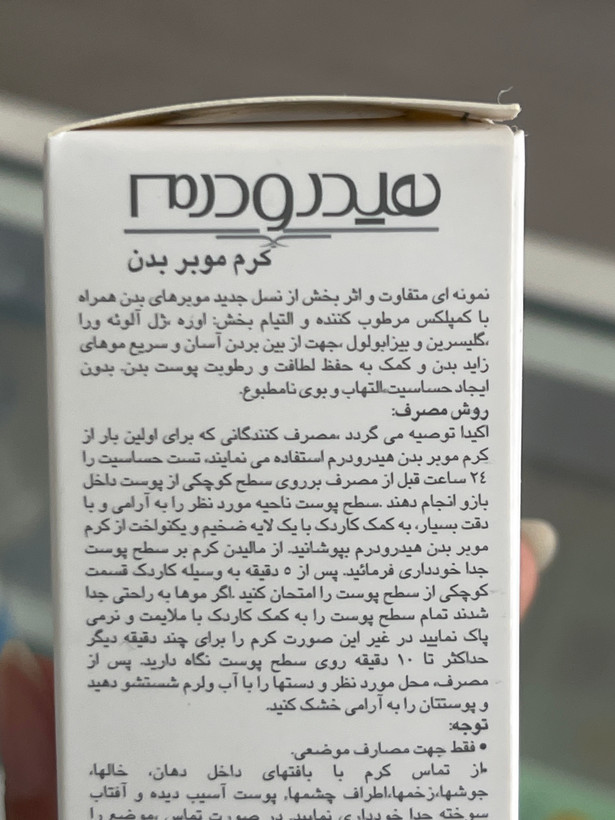 هیدرودرم
کرم موبر بدن
نمونه ای متفاوت و اثر بخش از نسل جدید موبرهای بدن همراه
با کمپلکس مرطوب کننده و التیام بخش: اوره ،ژل آلوئه ورا
،گلیسرین و بیزابولول ،جهت از بین بردن آسان و سریع موهای
زاید بدن و کمک به حفظ لطافت و رطوبت پوست بدن. بدون
ایجاد حساسیت،التهاب و بوی نامطبوع.
روش مصرف:
اکیدا توصیه می گردد ،مصرف کنندگانی که برای اولین بار از
کرم موبر بدن هیدرودرم استفاده می نمایند، تست حساسیت را
۲٤ ساعت قبل از مصرف برروی سطح کوچکی از پوست داخل
بازو انجام دهند .سطح پوست ناحیه مورد نظر را به آرامی و با
دقت بسیار، به کمک کاردک با یک لایه ضخیم و یکنواخت از کرم
موبر بدن هیدرودرم بپوشانید. از مالیدن کرم بر سطح پوست
جدا خودداری فرمائید. پس از ٥ دقیقه به وسیله کاردک قسمت
کوچکی از سطح پوست را امتحان کنید .اگر موها به راحتی جدا
شدند تمام سطح پوست را به کمک کاردک با ملایمت و نرمی
پاک نمایید در غیر این صورت کرم را برای چند دقیقه دیگر
حداکثر تا ۱۰ دقیقه روی سطح پوست نگاه دارید. پس از
مصرف، محل مورد نظر و دستها را با آب ولرم شستشو دهید
و پوستتان را به آرامی خشک کنید.
توجه:
• فقط جهت مصارف موضعی.
•از تماس کرم با بافتهای داخل دهان، خالها،
جوشها،زخمها،اطراف چشمها، پوست آسیب دیده و آفتاب
سوخته جدا خودداری نمایید. در صورت تماس ،موضع را